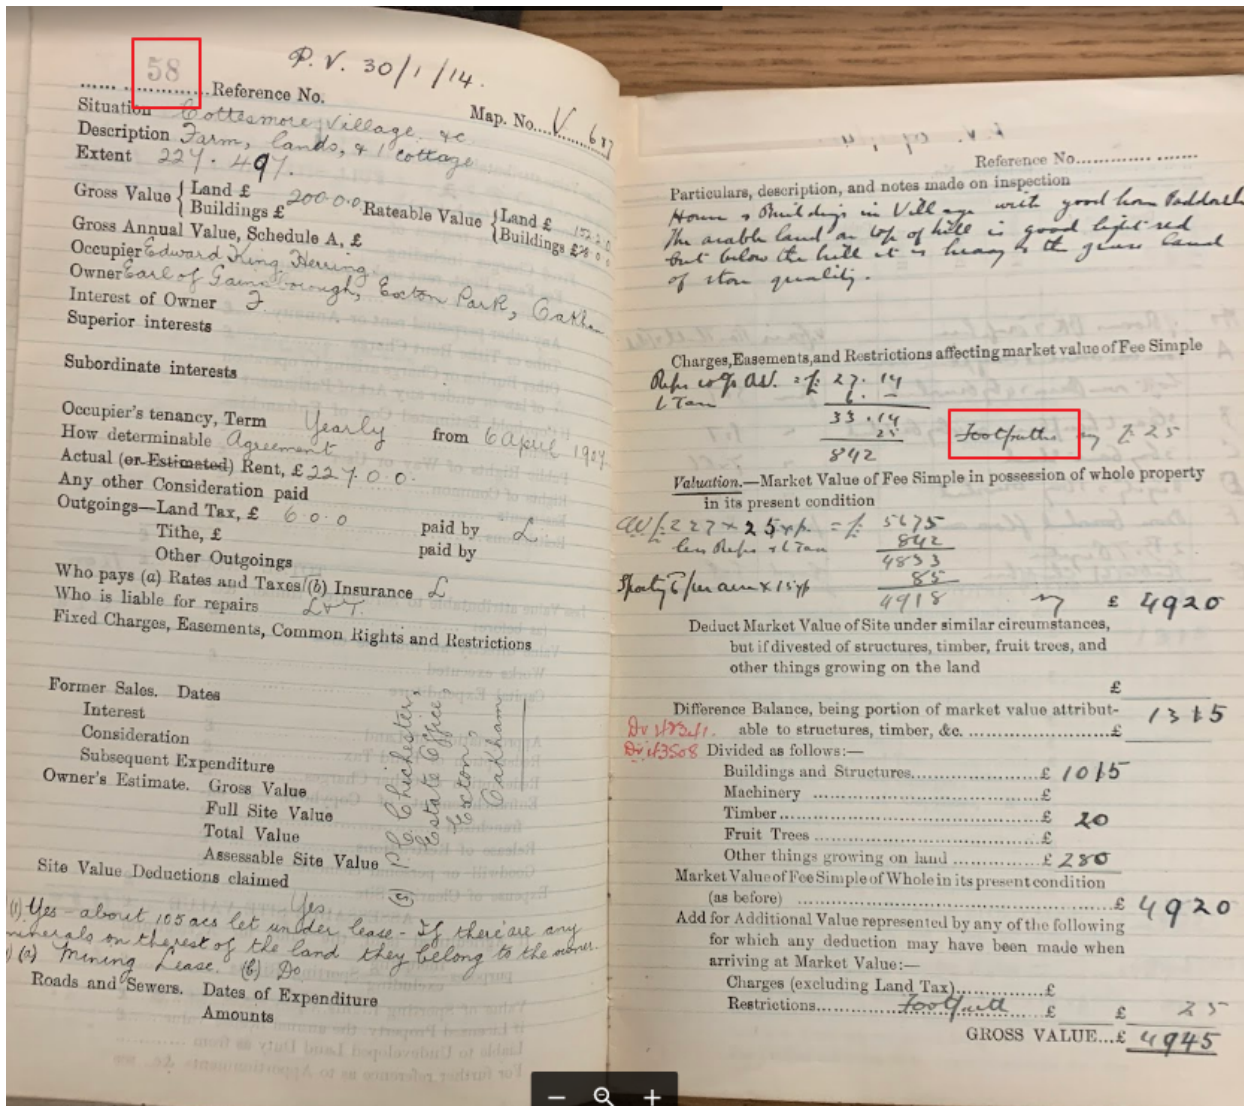 58 P. V. 30/1/14.
Reference No. Map. No. V. 687
Situation Cottesmore Village &c
Description Farm, lands, & 1 cottage
Extent 227. 497.
Gross Value { Land £ Buildings £ 200.0.0 Rateable Value { Land £ Buildings £
Gross Annual Value, Schedule A, £
Occupier Edward King Herring
Owner Earl of Gainsborough, Exton Park, Oakham
Interest of Owner F.
Superior interests
Subordinate interests
Occupier's tenancy, Term Yearly from 6 April
How determinable Agreement
Actual (or Estimated) Rent, £ 227.0.0.
Any other Consideration paid
Outgoings—Land Tax, £ 6.0.0 paid by L
Tithe, £ paid by
Other Outgoings
Who pays (a) Rates and Taxes (b) Insurance L
Who is liable for repairs L & T.
Fixed Charges, Easements, Common Rights and Restrictions
Former Sales. Dates
Interest
Consideration
Subsequent Expenditure
Owner's Estimate. Gross Value
Full Site Value
Total Value
Assessable Site Value
Chichester,
Estate Office,
Exton,
Oakham
Site Value Deductions claimed
Yes
(1) Yes - about 105 acs let under lease - If there are any
minerals on the rest of the land they belong to the owner.
(a) Mining Lease. (b) Do
Roads and Sewers. Dates of Expenditure
Amounts
Reference No.
Particulars, description, and notes made on inspection
House & Buildings in Village with good home Paddock
The arable land on top of hill is good light red
but below the hill it is heavy & the grass land
of quality.
Charges, Easements, and Restrictions affecting market value of Fee Simple
Reps 10% on AV. = £ 27. 14
L Tax 6. –
33.14
25
842
Footpaths say £ 25
Valuation.—Market Value of Fee Simple in possession of whole property
in its present condition
AV £227 x 25 yp. = £ 5675
less Reps & L Tax 842
4833
Sporting per acre x 15 yp 85
4918 say £ 4920
Deduct Market Value of Site under similar circumstances,
but if divested of structures, timber, fruit trees, and
other things growing on the land
£
Difference Balance, being portion of market value attribut-
able to structures, timber, &c. £ 1315
Divided as follows:—
Buildings and Structures £ 1015
Machinery £
Timber £ 20
Fruit Trees £
Other things growing on land £ 280
Market Value of Fee Simple of Whole in its present condition
(as before) £ 4920
Add for Additional Value represented by any of the following
for which any deduction may have been made when
arriving at Market Value:—
Charges (excluding Land Tax) £
Restrictions Footpath £ £ 25
GROSS VALUE...£ 4945